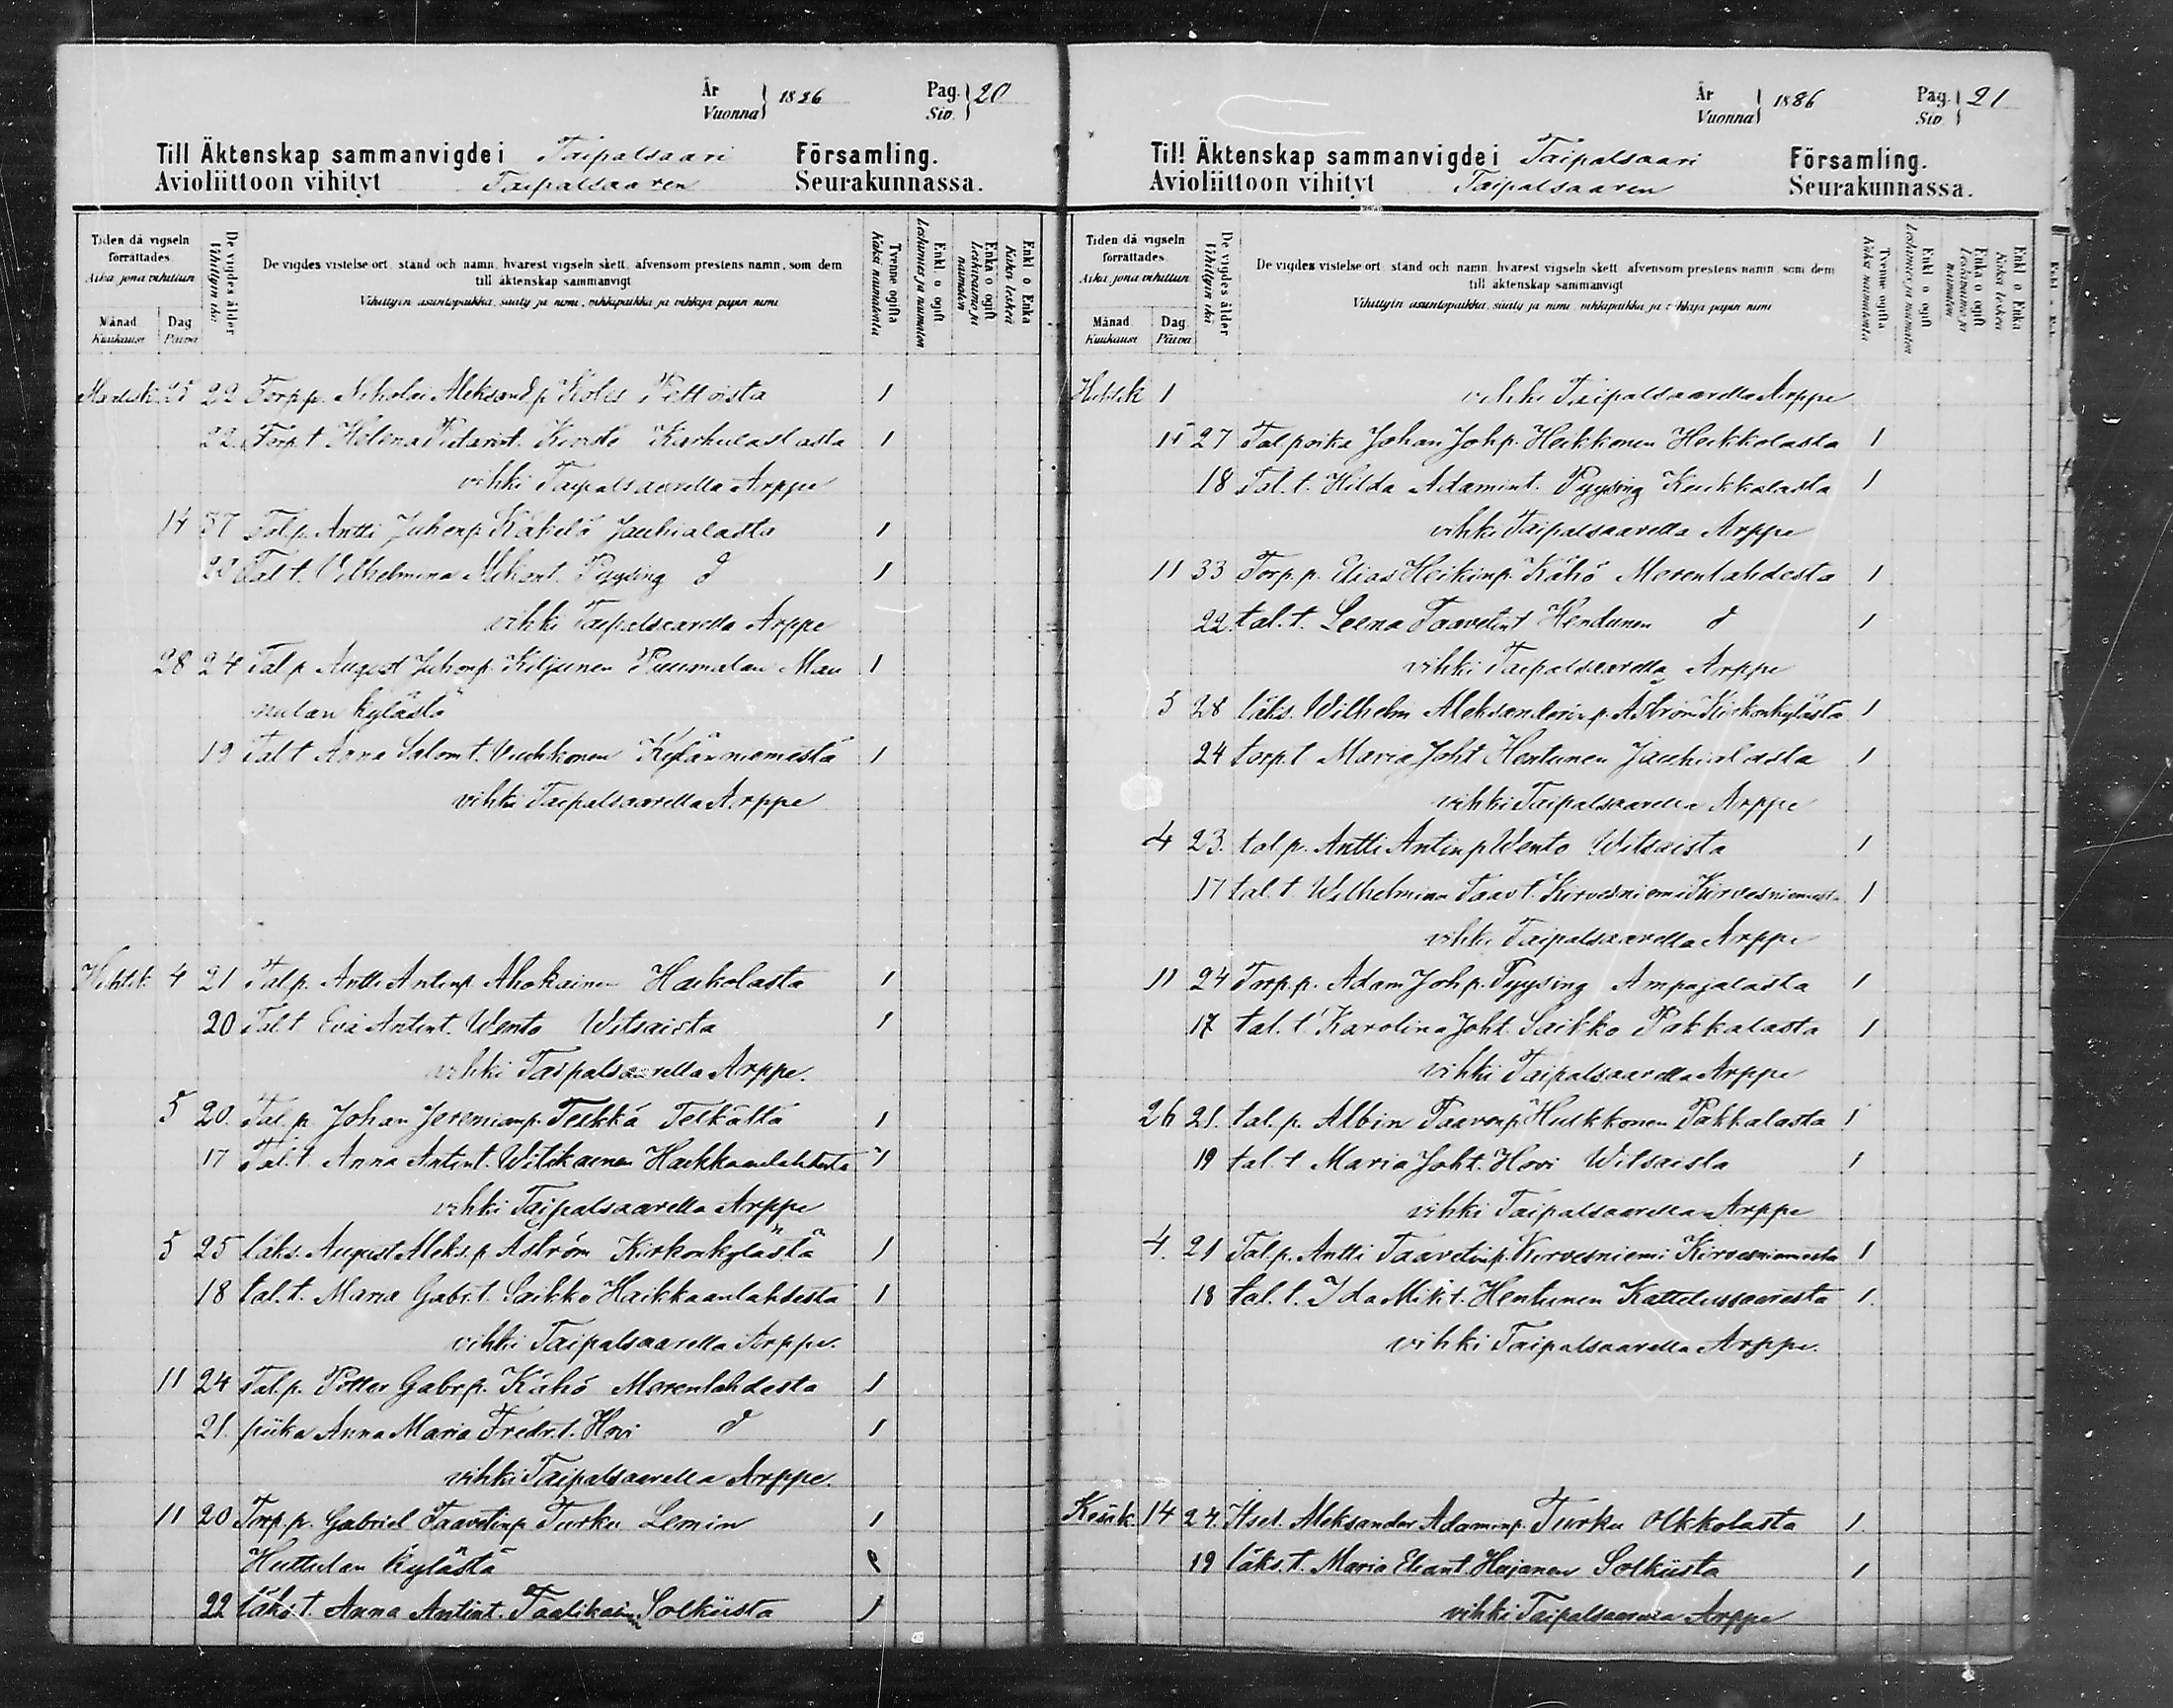 År
Vuonna } 1886
Pag.
Siv. } 20
Till Äktenskap sammanvigde i Taipalsaari Församling.
Avioliittoon vihityt Taipalsaaren Seurakunnassa.
Tiden då vigseln förrättades.
Aika jona vihittiin
Månad
Kuukausi
Dag
Päivä
De vigdes ålder
Vihittyin ikä
De vigdes vistelse ort, stånd och namn, hvarest vigseln skett, äfvensom prestens namn, som dem
till äktenskap sammanvigt
Vihittyin asuntopaikka, sääty ja nimi, vihkipaikka ja vihkijä papin nimi
Tvenne ogifta
Kaksi naimatonta
Enkl. o ogift
Leskimies ja naimaton
Enka o ogift
Leskivaimo ja naimaton
Enkl o Enka
Kaksi leskeä
Maalisk. 25 22 Torp.p. Nikolai Aleksand.p. Kolis 1
22. Torp.t. Helena 1
vihki Taipalsaarella Arppe
14 37 Tal.p. Antti Juhonp. Käkelä Jauhialasta 1
22 Tal.t. Vilhelmina Mikont. Pyysing d 1
vihki Taipalsaarella Arppe
28 24 Tal.p. August Juhonp. Kiljunen Puumalan Man 1
nulan kylästä
19 Tal.t. Anna Salom.t. Vuohkonen Kylänniemestä 1
vihki Taipalsaarella Arppe
Huhtik. 4 21 Tal.p. Antti Antinp. Ahokainen Haikolasta 1
20 Tal.t. Eva Antint. Wento Witsaista 1
vihki Taipalsaarella Arppe.
5 20. Tal.p. Johan Jeremianp. Telkkä Telkältä 1
17 Tal.t. Anna Antint. Witikainen Haikkaanlahdesta 1
vihki Taipalsaarella Arppe
5 25 läks. August Aleks.p. Åström Kirkonkylästä 1
18 tal.t. Maria Gabr.t. Saikko Haikkaanlahdesta 1
vihki Taipalsaarella Arppe.
11 24 Tal.p. Petter Gabr.p. Kähö Merenlahdesta 1
21. piika Anna Maria Fredr.t. Hovi d 1
vihki Taipalsaarella Arppe.
11 20 Torp.p. Gabriel Taavetinp. Turku Lemin 1
Huttulan kylästä
22 läks.t. Anna Antint. Taalikainen Solkiista 1
År
Vuonna } 1886
Pag.
Siv. } 21
Till Äktenskap sammanvigde i Taipalsaari Församling.
Avioliittoon vihityt Taipalsaaren Seurakunnassa.
Tiden då vigseln förrättades
Aika jona vihittiin
Månad
Kuukausi
Dag
Päivä
De vigdes ålder
Vihittyin ikä
De vigdes vistelse ort, stånd och namn, hvarest vigseln skett, äfvensom prestens namn, som dem
till äktenskap sammanvigt
Vihittyin asuntopaikka, sääty ja nimi, vihkipaikka ja vihkijä papin nimi
Tvenne ogifta
Kaksi naimatonta
Enkl o ogift
Leskimies ja naimaton
Enka o ogift
Leskivaimo ja naimaton
Enkl o Enka
Kaksi leskeä
Huhtik 1 vihki Taipalsaarella Arppe
15 27 Tal.poika Johan Joh.p. Heikkonen Heikkolasta 1
18 Tal.t. Hilda Adamint. Pyysing Kuikkalasta 1
vihki Taipalsaarella Arppe
11 33 Torp.p. Elias Heikinp. Kähö Merenlahdesta 1
22. tal.t. Leena Taavetint Hendunen d 1
vihki Taipalsaarella Arppe
5 28 läks. Wilhelm Aleksanderinp. Åström Kirkonkylästä 1
24 torp.t Maria Joh.t Hentunen Jauhialasta 1
vihki Taipalsaarella Arppe
4 23. tal.p. Antti Antinp Wento Witsaista 1
17 tal.t. Wilhelmina Taav.t. Kirvesniemi Kirvesniemestä 1
vihki Taipalsaarella Arppe
11 24 Torp.p. Adam Joh.p. Pyysing Ampujalasta 1
17 tal.t Karolina Joh.t. Saikko Pakkalasta 1
vihki Taipalsaarella Arppe
26 21. tal.p. Albin Taavinp. Hulkkonen Pakkalasta 1
19 tal.t Maria Joh.t. Hovi Witsaista 1
vihki Taipalsaarella Arppe
4. 21 Tal.p. Antti Taavetinp. Kirvesniemi Kirvesniemestä 1
18 tal.t. Ida Mik.t. Hentunen Kattelussaaresta 1.
vihki Taipalsaarella Arppe.
Kesäk. 14 24. Itsel. Aleksander Adaminp. Turku Olkkolasta 1.
19 läks.t. Maria Eliant. Hujanen Solkiista 1
vihki Taipalsaarella Arppe